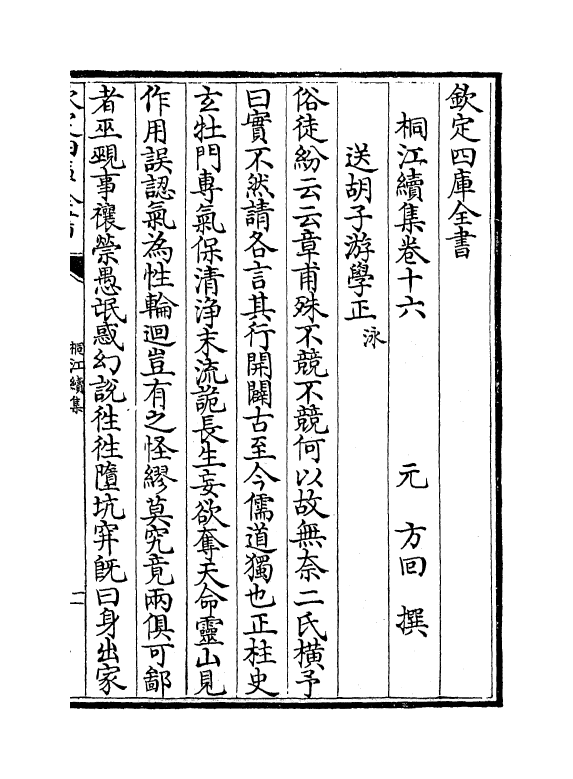 欽定四庫全書
桐江續集卷十六　元　方回　撰
送胡子游學正泳
俗徒紛云云章甫殊不競不競何以故無奈二氏橫予
曰實不然請各言其行開闢古至今儒道獨也正柱史
玄牡門専氣保清浄末流詭長生妄欲奪天命靈山見
作用誤認氣為性輪迴豈有之怪繆莫究竟兩俱可鄙
者巫覡事禳禜愚氓惑幻説徃徃墮坑穽旣曰身出家
桐江續集